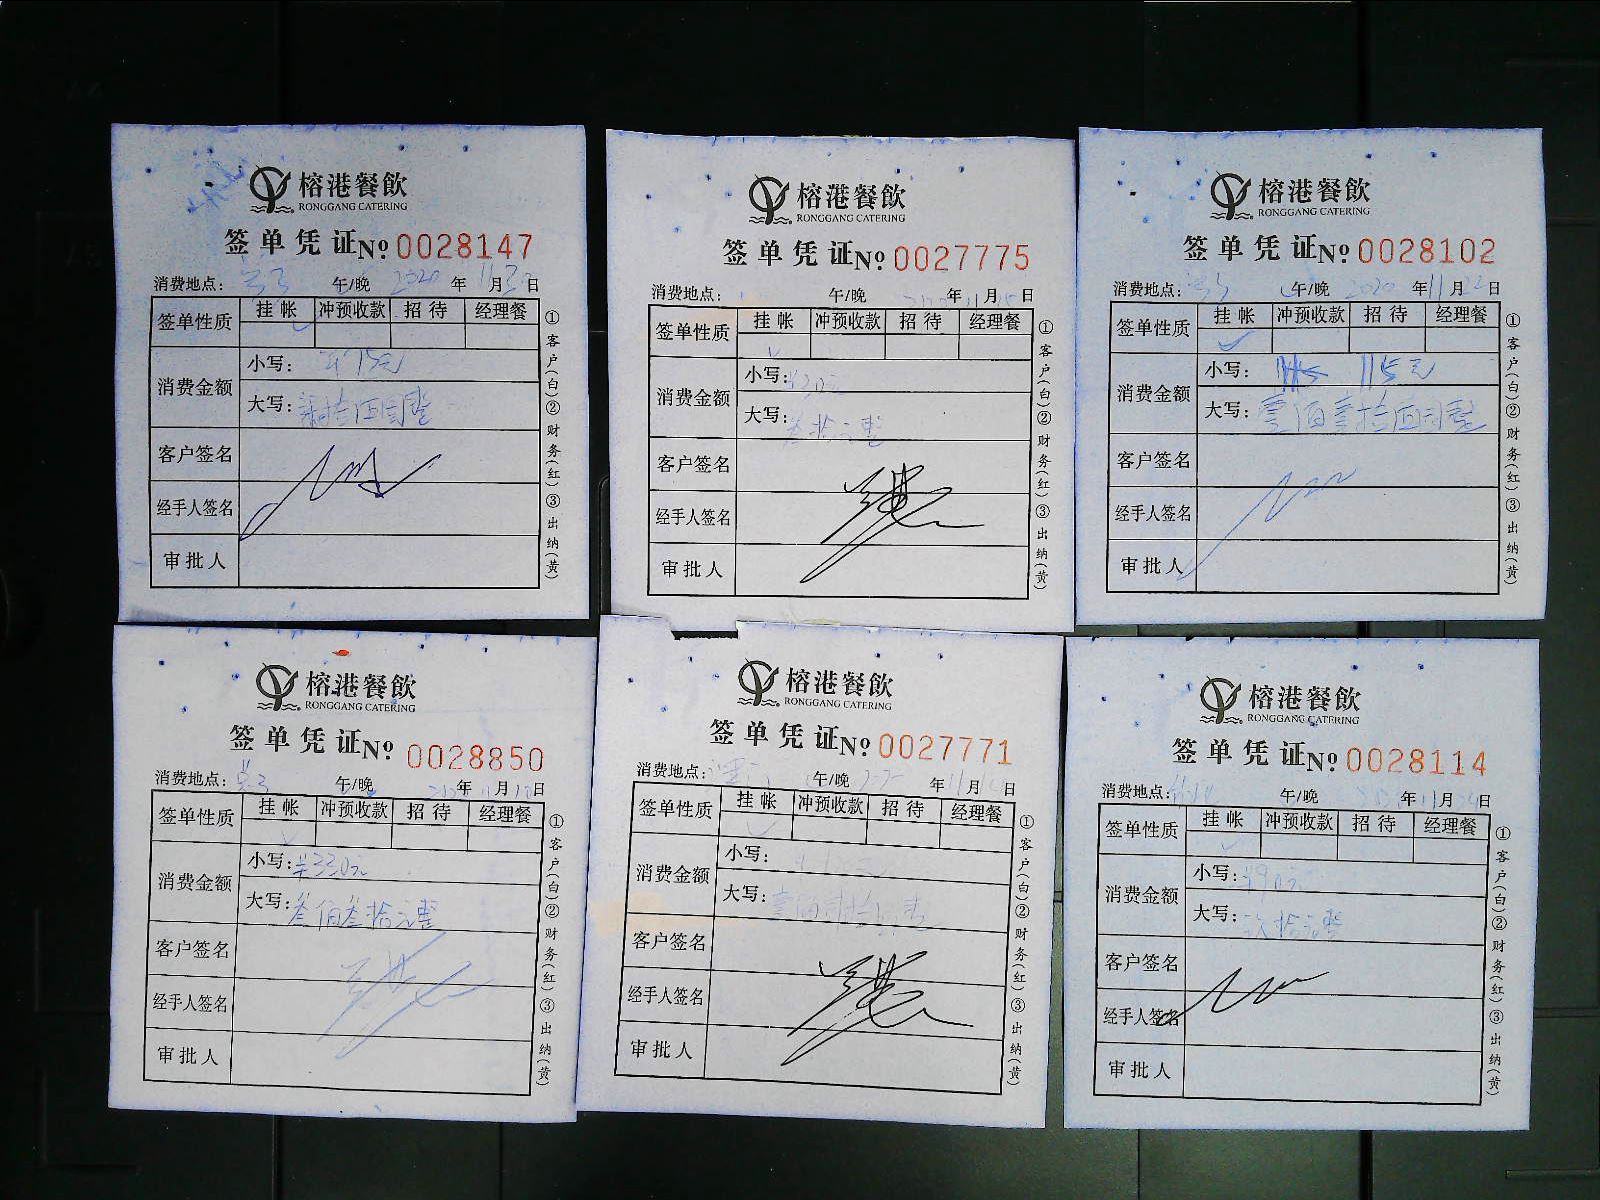 榕港餐飲
RONGGANG CATERING
签单凭证№ 0028147
消费地点: 午/晚 2020年11月30日
签单性质 挂帐 冲预收款 招待 经理餐
消费金额
小写: 75元
大写: 柒拾伍圆整
客户签名
经手人签名
审批人
①客户(白)②财务(红)③出纳(黄)
榕港餐飲
RONGGANG CATERING
签单凭证№ 0027775
消费地点: 午/晚 年11月15日
签单性质 挂帐 冲预收款 招待 经理餐
消费金额
小写:
大写: 拾元整
客户签名
经手人签名
审批人
①客户(白)②财务(红)③出纳(黄)
榕港餐飲
RONGGANG CATERING
签单凭证№ 0028102
消费地点: 午/晚 2020年11月22日
签单性质 挂帐 冲预收款 招待 经理餐
消费金额
小写: 115元
大写: 壹佰壹拾伍圆整
客户签名
经手人签名
审批人
①客户(白)②财务(红)③出纳(黄)
榕港餐飲
RONGGANG CATERING
签单凭证№ 0028850
消费地点: 午/晚 年 月 日
签单性质 挂帐 冲预收款 招待 经理餐
消费金额
小写: ¥330元
大写: 叁佰叁拾元整
客户签名
经手人签名
审批人
①客户(白)②财务(红)③出纳(黄)
榕港餐飲
RONGGANG CATERING
签单凭证№ 0027771
消费地点: 午/晚 年11月 日
签单性质 挂帐 冲预收款 招待 经理餐
消费金额
小写:
大写: 壹佰 拾
客户签名
经手人签名
审批人
①客户(白)②财务(红)③出纳(黄)
榕港餐飲
RONGGANG CATERING
签单凭证№ 0028114
消费地点: 午/晚 年11月24日
签单性质 挂帐 冲预收款 招待 经理餐
消费金额
小写: ¥90元
大写: 玖拾元整
客户签名
经手人签名
审批人
①客户(白)②财务(红)③出纳(黄)